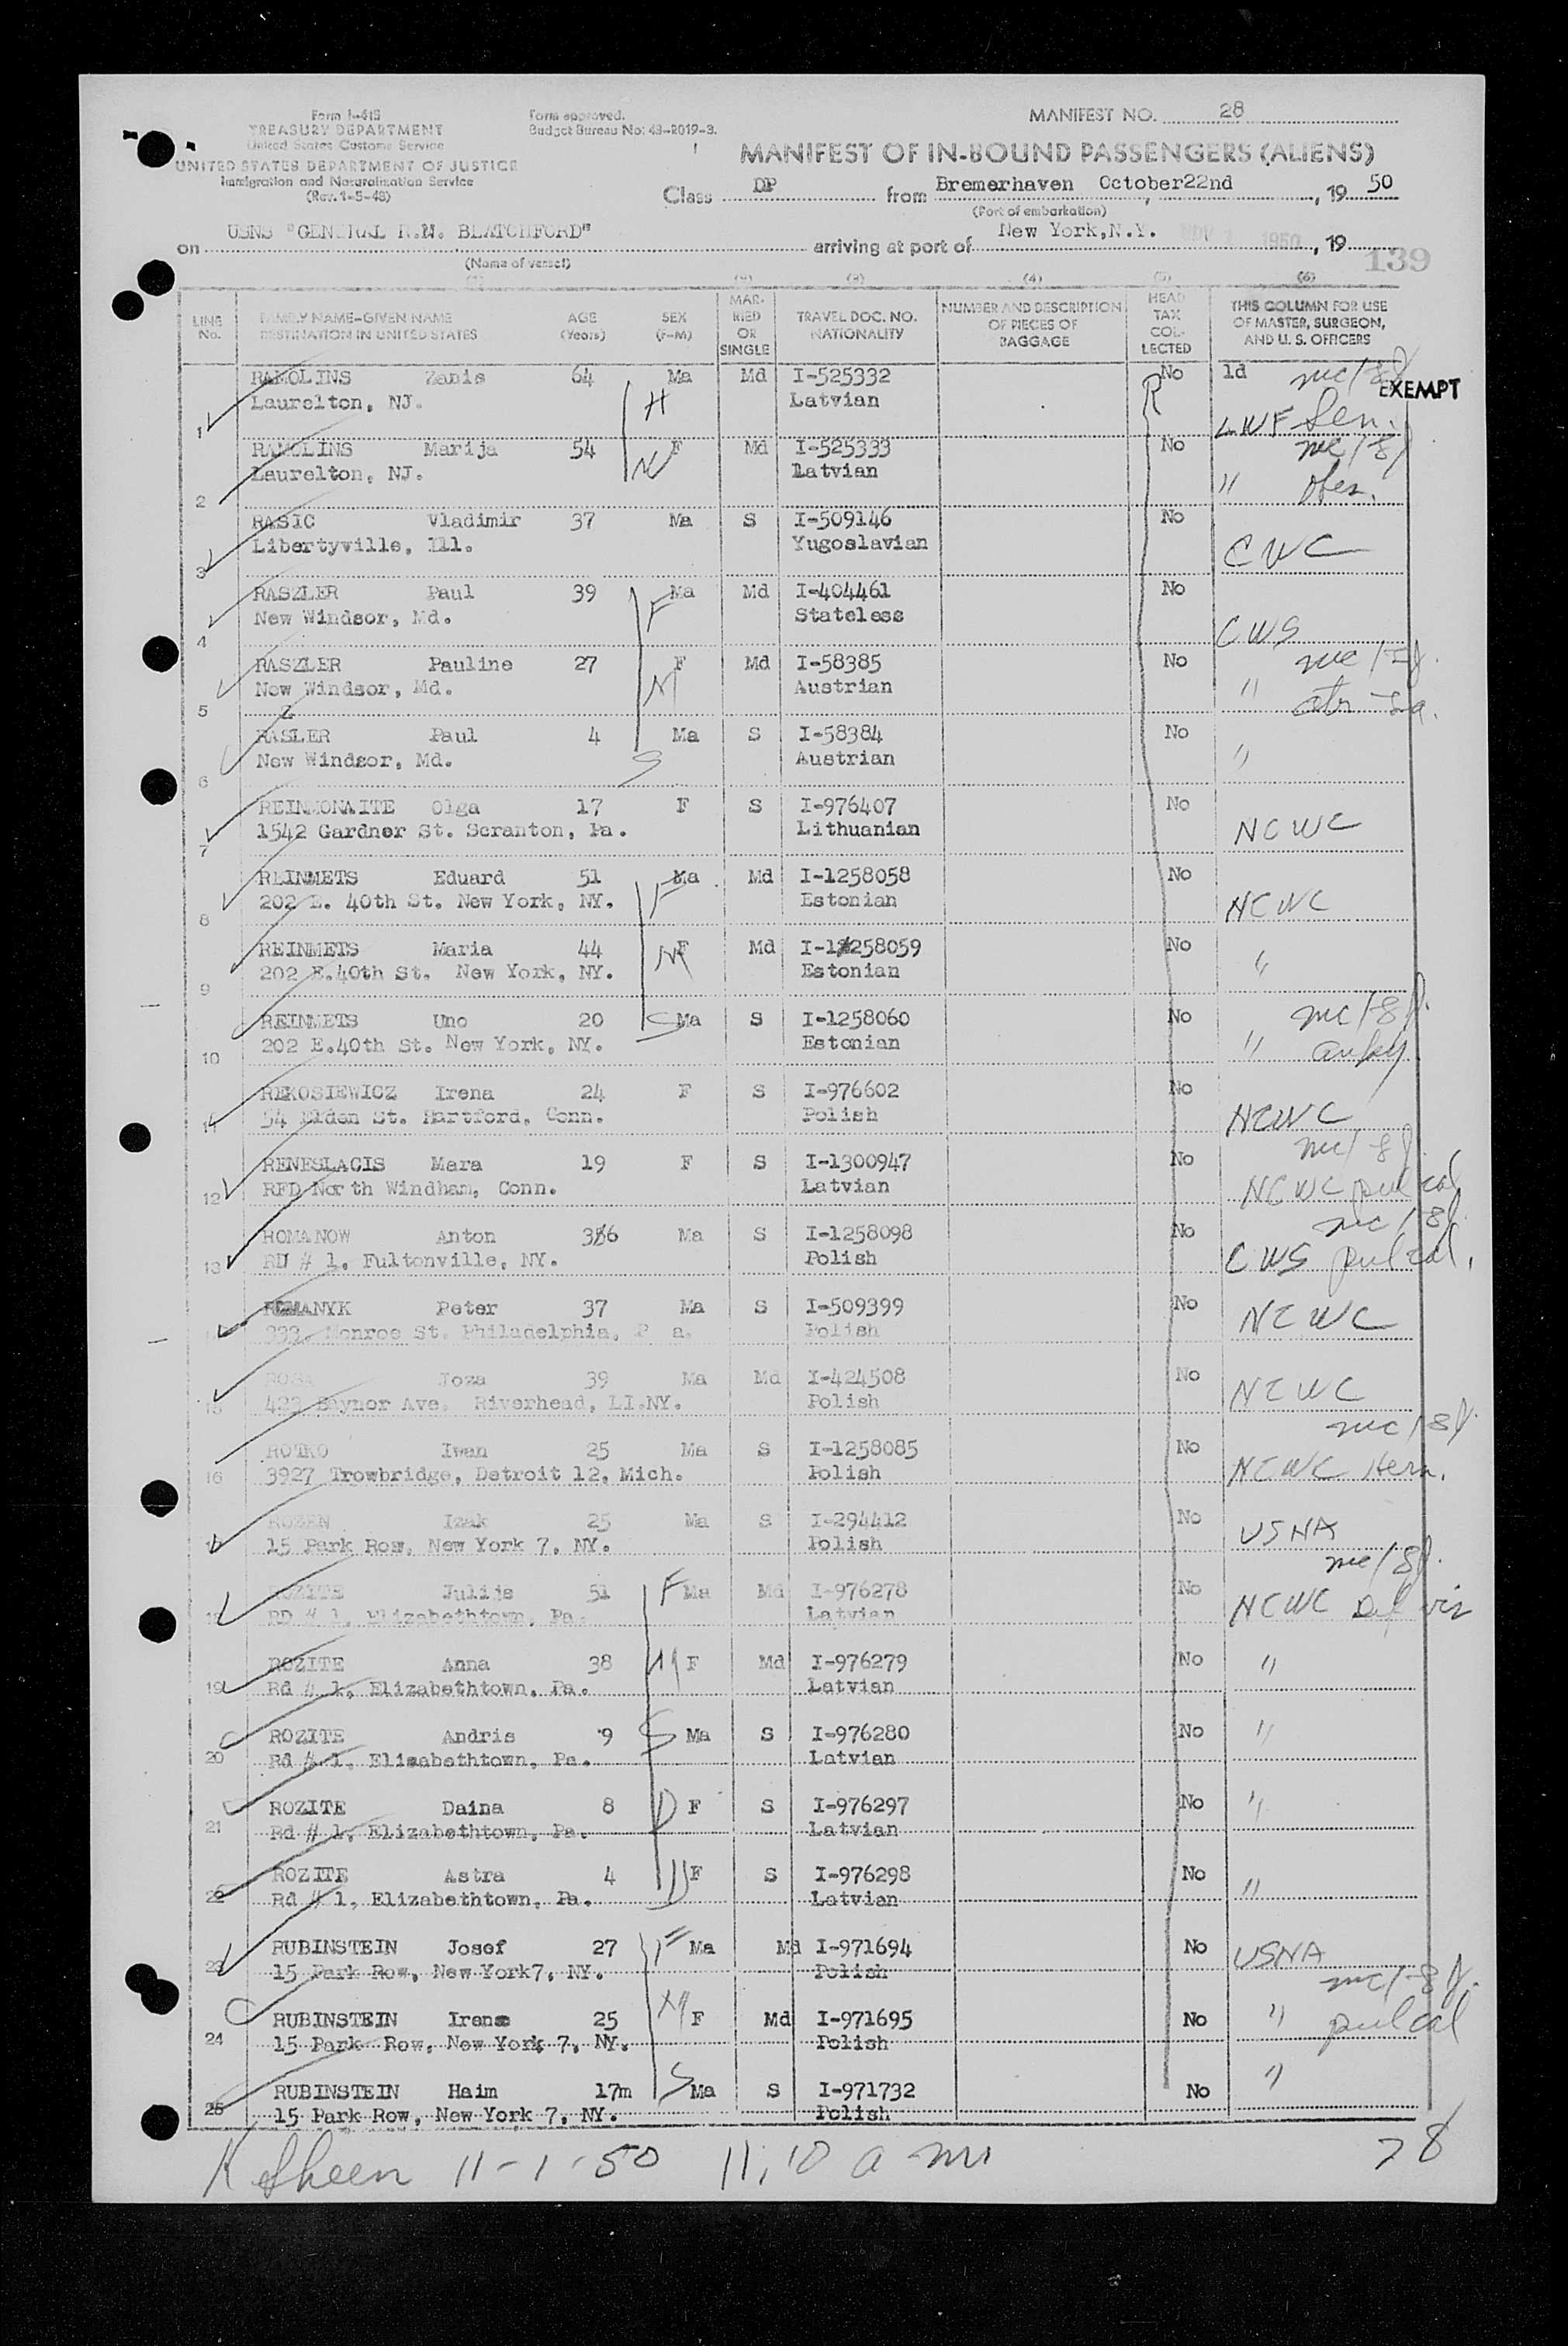 Form I-415
TREASURY DEPARTMENT
United States Customs Service
UNITED STATES DEPARTMENT OF JUSTICE
Immigration and Naturalization Service
(Rev. 1-5-48)
Form approved.
Budget Bureau No: 43-R019-3.
MANIFEST NO. 28
MANIFEST OF IN-BOUND PASSENGERS (ALIENS)
Class DP from Bremerhaven October22nd, 19 50
(Port of embarkation)
on USNS "GENERAL R.M. BLATCHFORD" arriving at port of New York,N.Y. NOV 1950, 19
(Name of vessel)
139
(3) (4) (5) (6)
LINE No. FAMILY NAME-GIVEN NAME DESTINATION IN UNITED STATES AGE (Years) SEX (F-M) MARRIED OR SINGLE TRAVEL DOC. NO. NATIONALITY NUMBER AND DESCRIPTION OF PIECES OF BAGGAGE HEAD TAX COLLECTED THIS COLUMN FOR USE OF MASTER, SURGEON, AND U. S. OFFICERS
RAMOLINS Zanis 64 Ma Md I-525332 No 1d
EXEMPT
1 Laurelton, NJ. H Latvian R LWF Sen.
RAMOLINS Marija 54 F Md I-525333 No
2 Laurelton, NJ. W Latvian "
RASIC Vladimir 37 Ma S I-509146 No
3 Libertyville, Ill. Yugoslavian CWC
RASZLER Paul 39 Ma Md I-404461 No
4 New Windsor, Md. F Stateless CWS
RASZLER Pauline 27 F Md I-58385 No
5 New Windsor, Md. M Austrian "
Z
RASLER Paul 4 Ma S I-58384 No
6 New Windsor, Md. S Austrian "
REINMONAITE Olga 17 F S I-976407 No
7 1542 Gardner St. Scranton, Pa. Lithuanian NCWC
REINMETS Eduard 51 Ma Md I-1258058 No
8 202 E. 40th St. New York, NY. F Estonian NCWC
REINMETS Maria 44 F Md I-1258059 No
9 202 E.40th St. New York, NY. M Estonian "
REINMETS Uno 20 S Ma S I-1258060 No
10 202 E.40th St. New York, NY. Estonian "
REKOSIEWICZ Irena 24 F S I-976602 No
11 54 Elden St. Hartford, Conn. Polish NCWC
RENESLACIS Mara 19 F S I-1300947 No
12 RFD North Windham, Conn. Latvian NCWC pul cal
ROMANOW Anton 36 Ma S I-1258098 No
13 RD # 1, Fultonville, NY. Polish CWS pul cal.
ROMANYK Peter 37 Ma S I-509399 No
14 Monroe St. Philadelphia, P a. Polish NCWC
ROSA Joza 39 Ma Md I-424508 No
15 Raynor Ave. Riverhead, LI.NY. Polish NCWC
ROTKO Iwan 25 Ma S I-1258085 No
16 3927 Trowbridge, Detroit 12, Mich. Polish NCWC Hern.
ROZEN Izak 25 Ma S I-294412 No
17 15 Park Row, New York 7, NY. Polish USNA
ROZITE Julijs 51 F Ma Md I-976278 No
18 RD # 1, Elizabethtown, Pa. Latvian NCWC Def vis
ROZITE Anna 38 M F Md I-976279 No
19 Rd # 1, Elizabethtown, Pa. Latvian "
ROZITE Andris 9 S Ma S I-976280 No
20 Rd # 1, Elizabethtown, Pa. Latvian "
ROZITE Daina 8 D F S I-976297 No
21 Rd # 1, Elizabethtown, Pa. Latvian "
ROZITE Astra 4 D F S I-976298 No
22 Rd # 1, Elizabethtown, Pa. Latvian "
RUBINSTEIN Josef 27 F Ma Md I-971694 No
23 15 Park Row, New York7, NY. Polish USNA
RUBINSTEIN Irena 25 M F Md I-971695 No
24 15 Park Row, New York 7, NY. Polish " pul cal
RUBINSTEIN Haim 17m S Ma S I-971732 No
25 15 Park Row, New York 7, NY. Polish "
K Sheen 11-1-50 11:10 a m
28